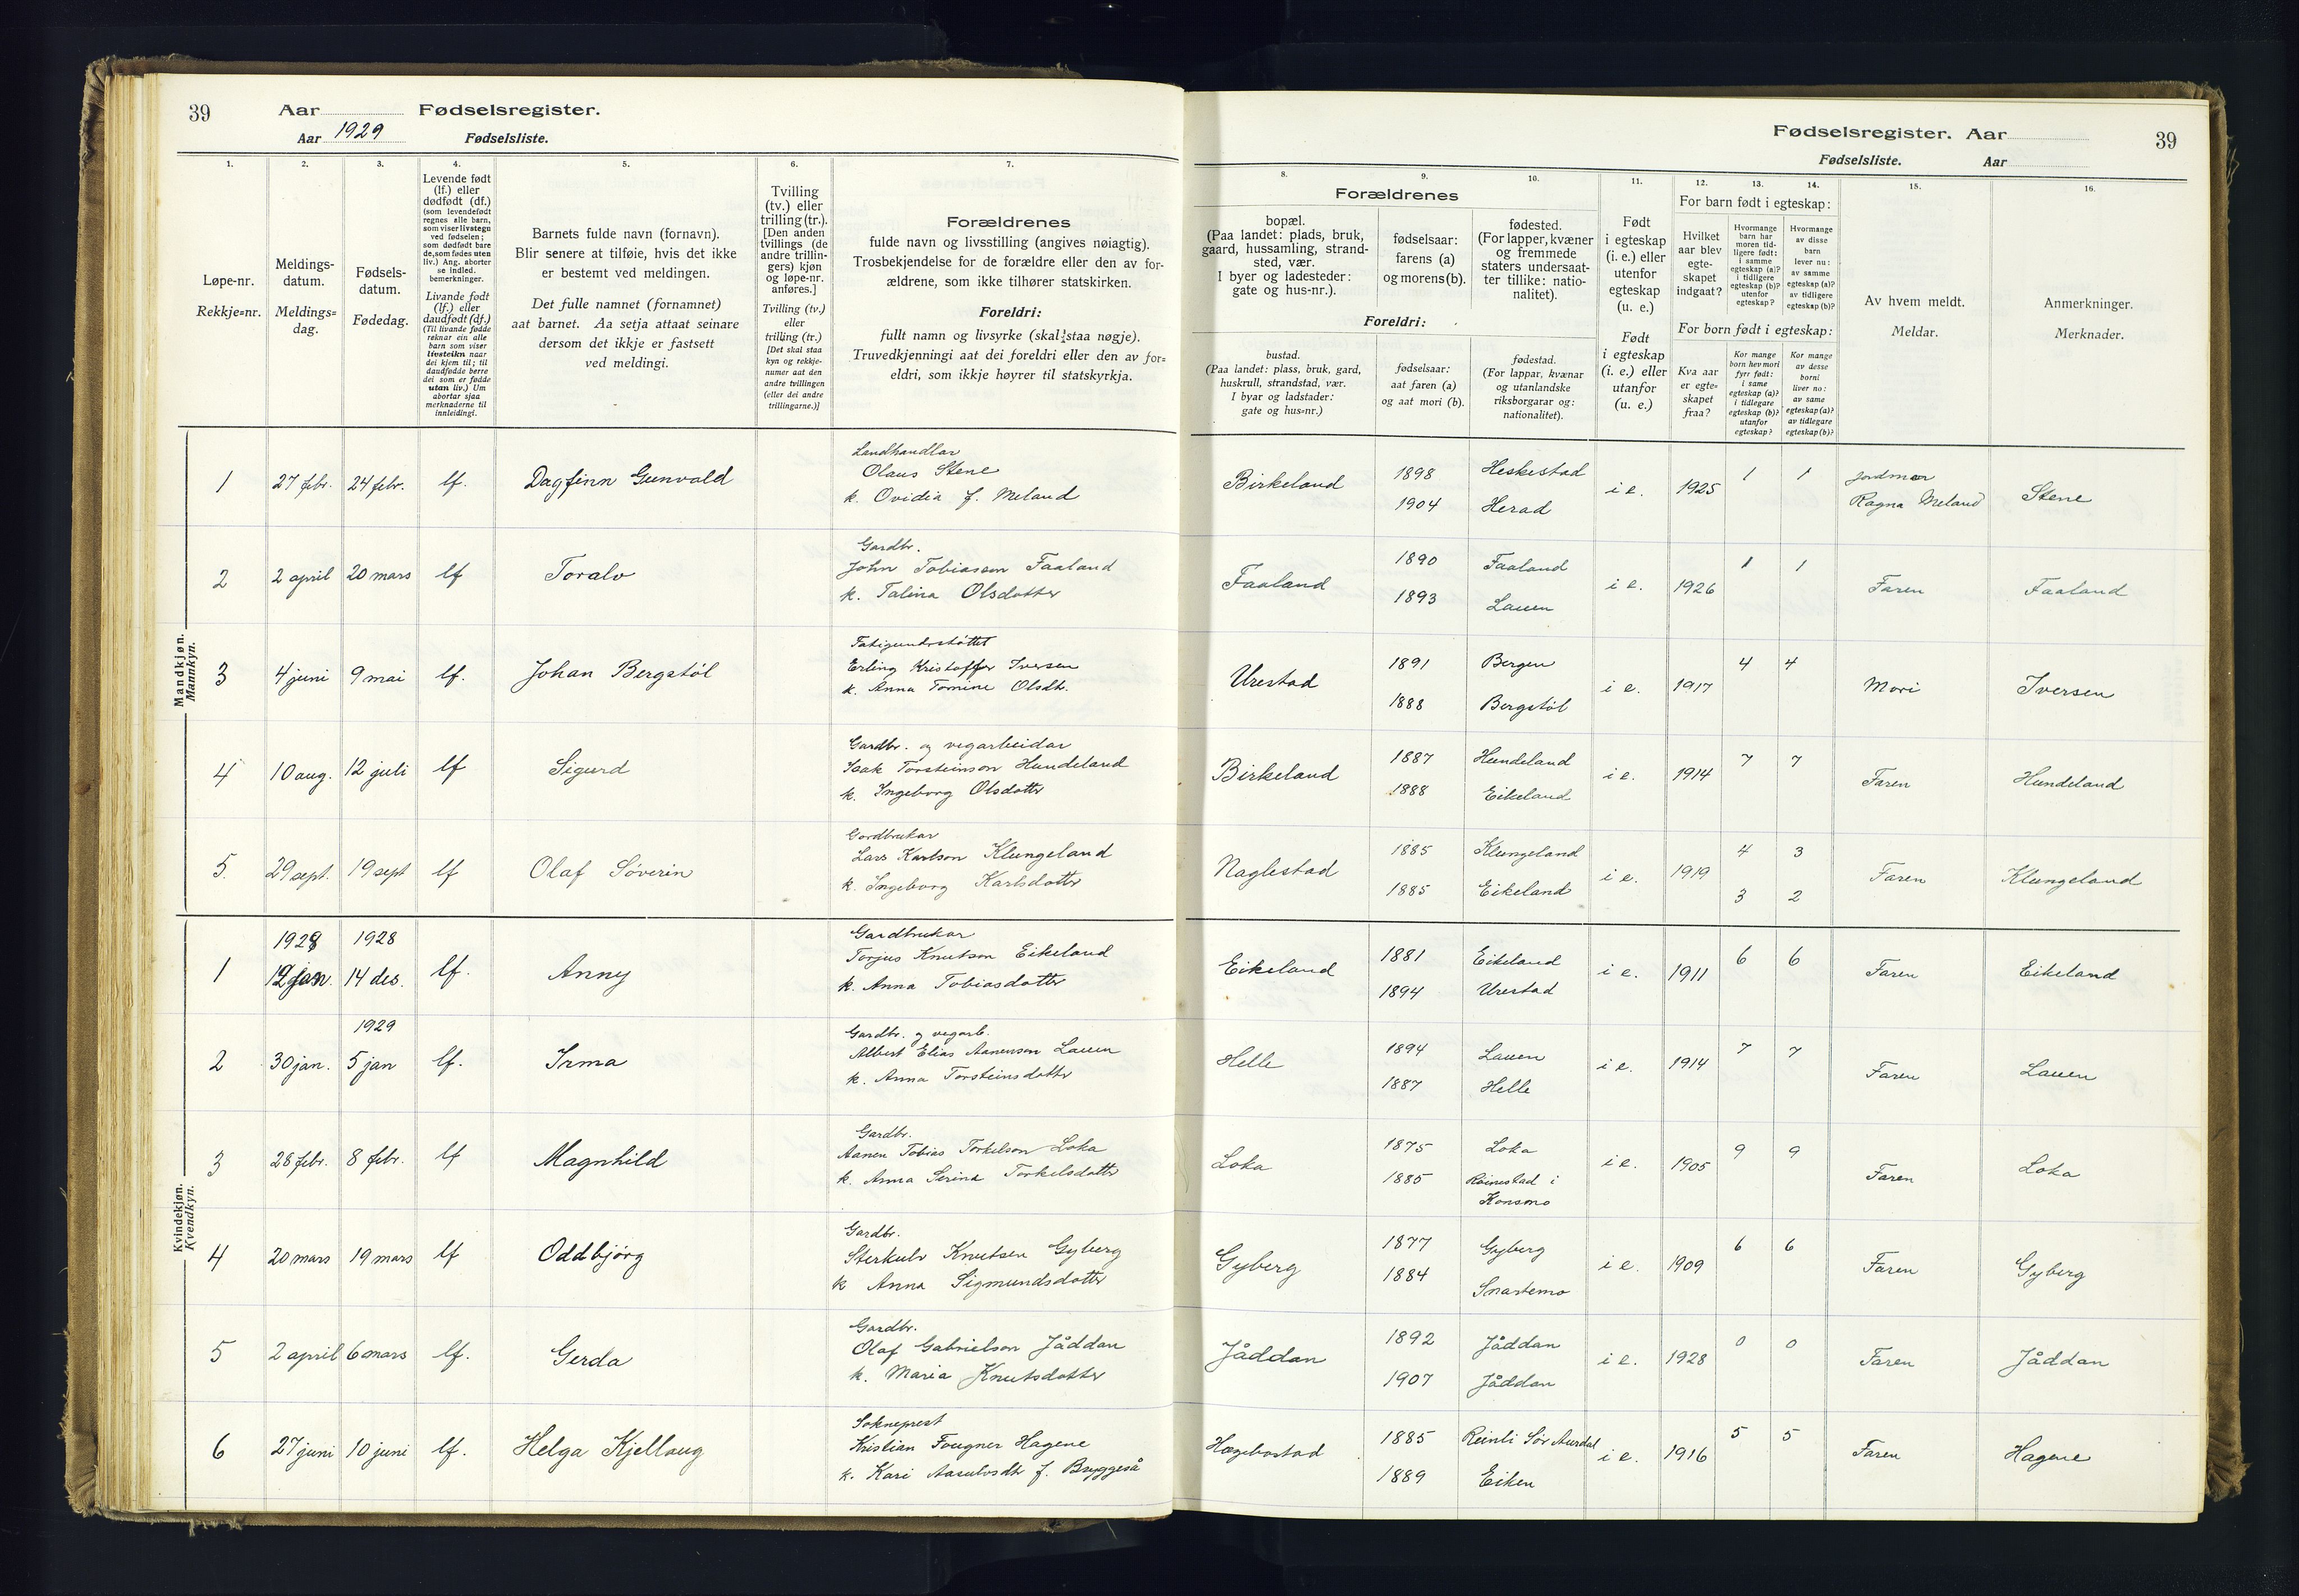 39
Aar Fødselsregister.
Aar 1929 Fødselsliste.
1. 2. 3. 4. 5. 6. 7.
Løpe-nr.
Rekkje=nr.
Meldings-
datum.
Meldings=
dag.
Fødsels-
datum.
Fødedag.
Levende født
(lf.) eller
dødfødt (df.)
(som levendefødt
regnes alle barn,
som viser livstegn
ved fødselen;
som dødfødt bare
de, som fødes uten
liv.) Ang. aborter
se indled.
bemerkninger.
Livande født
(lf.) eller
daudfødt (df.)
(Til livande fødde
reknar ein alle
barn som viser
livsteikn naar
dei kjem til; til
daudfødde berre
dei som er fødde
utan liv.) Um
abortar sjaa
merknaderne til
innleidingi.
Barnets fulde navn (fornavn).
Blir senere at tilføie, hvis det ikke
er bestemt ved meldingen.
Det fulle namnet (fornamnet)
aat barnet. Aa setja attaat seinare
dersom det ikkje er fastsett
ved meldingi.
Tvilling
(tv.) eller
trilling (tr.).
[Den anden
tvillings (de
andre trillin-
gers) kjøn
og løpe-nr.
anføres.]
Tvilling (tv.)
eller
trilling (tr.)
[Det skal staa
kyn og rekkje-
numer aat den
andre tvillingen
(eller dei andre
trillingarne.)]
Forældrenes
fulde navn og livsstilling (angives nøiagtig).
Trosbekjendelse for de forældre eller den av for-
ældrene, som ikke tilhører statskirken.
Foreldri:
fullt namn og livsyrke (skal staa nøgje).
Truvedkjenningi aat dei foreldri eller den av for=
eldri, som ikkje høyrer til statskyrkja.
Mandkjøn.
Mannkyn.
1 27 febr. 24 febr. lf. Dagfinn Gunvald
Landhandlar
Olaus Stene
k. Ovidia f. Meland
2 2 april 20 mars lf Toralv
Gardbr.
John Tobiassen Faaland
k. Talina Olsdotter
3 4 juni 9 mai lf. Johan Bergstøl
Fatigundrstøttet
Erling Kristoffer Iversen
k. Anna Tomine Olsdtr.
4 10 aug. 12 juli lf Sigurd
Gardbr. og vegarbeidar
Isak Torsteinson Hundeland
k. Ingeborg Olsdottr
5. 29 sept. 19 sept lf Olaf Søverin
Gardbrukar
Lars Karlson Klungeland
k. Ingeborg Karlsdottr
Kvindekjøn.
Kvendkyn.
1928 1928
1 12 jan. 14 des. lf. Anny
Gardbrukar
Torjus Knutson Eikeland
k. Anna Tobiasdottr
1929
2 30 jan. 5 jan lf. Irma
Gardbr. og vegarb.
Albert Elias Aanenson Lauen
k. Anna Torsteinsdottr
3 28 febr. 8 febr. lf Magnhild
Gardbr.
Aanen Tobias Torkelson Loka
k. Anna Serina Torkelsdottr
4 20 mars 19 mars lf Oddbjørg
Gardbr.
Sterkulv Knutsen Gyberg
k Anna Sigmundsdottr
5 2 april 6 mars lf. Gerda
Gardbr.
Olaf Gabrielson Jåddan
k. Maria Knutsdotter
6 27 juni 10 juni lf. Helga Kjellaug
Sokneprest
Kristian Fougner Hagene
k. Kari Aasulvsdtr f. Bryggeså
Fødselsregister. Aar 39
Fødselsliste. Aar
8. 9. 10. 11. 12. 13. 14. 15. 16.
Forældrenes
bopæl.
(Paa landet: plads, bruk,
gaard, hussamling, strand-
sted, vær.
I byer og ladesteder:
gate og hus-nr.).
fødselsaar:
farens (a)
og morens (b).
fødested.
(For lapper, kvæner
og fremmede
staters undersaat-
ter tillike: natio-
nalitet).
Foreldri:
bustad.
(Paa landet: plass, bruk, gard,
huskrull, strandstad, vær.
I byar og ladstader:
gate og hus=nr.)
fødselsaar:
aat faren (a)
og aat mori (b).
fødestad.
(For lappar, kvænar
og utanlandske
riksborgarar og:
nationalitet).
Født
i egteskap
(i. e.) eller
utenfor
egteskap
(u. e.)
Født
i egteskap
(i. e.) eller
utanfor
(u. e.)
For barn født i egteskap:
Hvilket
aar blev
egte-
skapet
indgaat?
Hvormange
barn har
moren tid-
ligere født:
i samme
egteskap (a)?
i tidligere
egteskap (b)?
utenfor
egteskap?
Hvormange
av disse
barn
lever nu:
av samme
egteskap (a)?
av tidligere
egteskap (b)?
For born født i egteskap:
Kva aar
er egte=
skapet
fraa?
Kor mange
born hev mori
fyrr født:
i same
egteskap (a)?
i tidlegare
egteskap (b)?
utanfor
egteskap?
Kor mange
av desse
borni
liver no:
av same
egteskap (a)?
av tidlegare
egteskap (b)?
Av hvem meldt.
Meldar.
Anmerkninger.
Merknader.
Birkeland 1898 Heskestad i e. 1925 1 1 Jordmor
1904 Herad Ragna Meland Stene
Faaland 1890 Faaland i e. 1926 1 1 Faren Faaland
1893 Lauen
Urestad 1891 Bergen i e. 1917 4 4 Mori Iversen
1888 Bergstøl
Birkeland 1887 Hundeland i e. 1914 7 7 Faren Hundeland
1888 Eikeland
Naglestad 1885 Klungeland i e. 1919 4 3 Faren Klungeland
1885 Eikeland 3 2
Eikeland 1881 Eikeland i e. 1911 6 6 Faren Eikeland
1894 Urestad
Helle 1894 Lauen i e. 1914 7 7 Faren Lauen
1887 Helle
Loka 1875 Loka i e. 1905 9 9 Faren Loka
1885 Røinestad i
Konsmo
Gyberg 1877 Gyberg i e. 1909 6 6 Faren Gyberg
1884 Snartemo
Jåddan 1892 Jåddan i e. 1928 0 0 Faren Jåddan
1907 Jåddan
Hægebostad 1885 Reinli Sør Aurdal i e. 1916 5 5 Faren Hagene
1889 Eiken